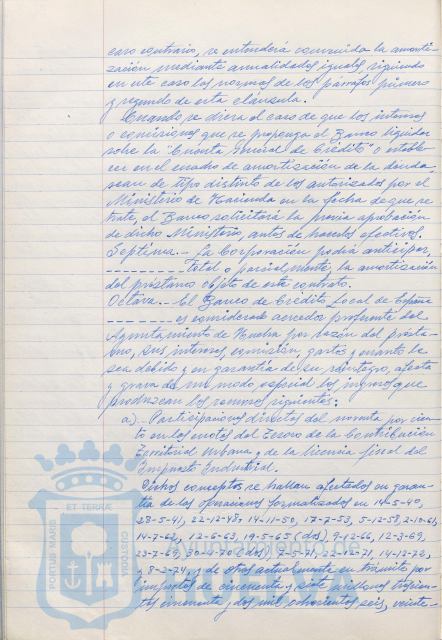 caso contrario, se entenderá convenida la amorti-
zación mediante anualidades iguales, siguiendo
en este caso las normas de los párrafos primero
y segundo de esta cláusula.
Cuando se diera el caso de que los intereses
o comisiones que se proponga el Banco liquidar
sobre la "Cuenta General de Crédito" o estable-
cer en el cuadro de amortización de la deuda
sean de tipo distinto de los autorizados por el
Ministerio de Hacienda en la fecha de que se
trate, el Banco solicitará la previa aprobación
de dicho Ministerio, antes de hacerlos efectivos.
Septima.- La Corporación podrá anticipar,
total o parcialmente, la amortización
del préstamo objeto de este contrato.
Octava.- El Banco de Crédito Local de España
es considerado acreedor preferente del
Ayuntamiento de Huelva por razón del présta-
mo, sus intereses, comisión, gastos y cuanto le
sea debido y en garantía de su reintegro, afecta
y grava de un modo especial los ingresos que
produzcan los recursos siguientes:
a).- Participaciones directas del noventa por cien-
to en las cuotas del Tesoro de la Contribución
Territorial Urbana y de la licencia fiscal del
Impuesto Industrial.
Dichos conceptos se hallan afectados en garan-
tía de las operaciones formalizadas en 14-5-40,
28-5-41, 22-12-48, 14-11-50, 17-7-53, 5-12-58, 2-10-61,
14-7-62, 12-6-63, 19-5-65 (dos), 9-12-66, 12-3-69,
23-7-69, 30-4-70 (dos), 7-5-71, 22-12-71, 14-12-72,
y 8-2-74, y de otros actualmente en trámite por
importes de cincuenta y siete millones trescien-
tas cincuenta y dos mil ochocientas seis, veinte-
PORTUS MARIS
ET TERRAE
CUSTODIA
HUELVA